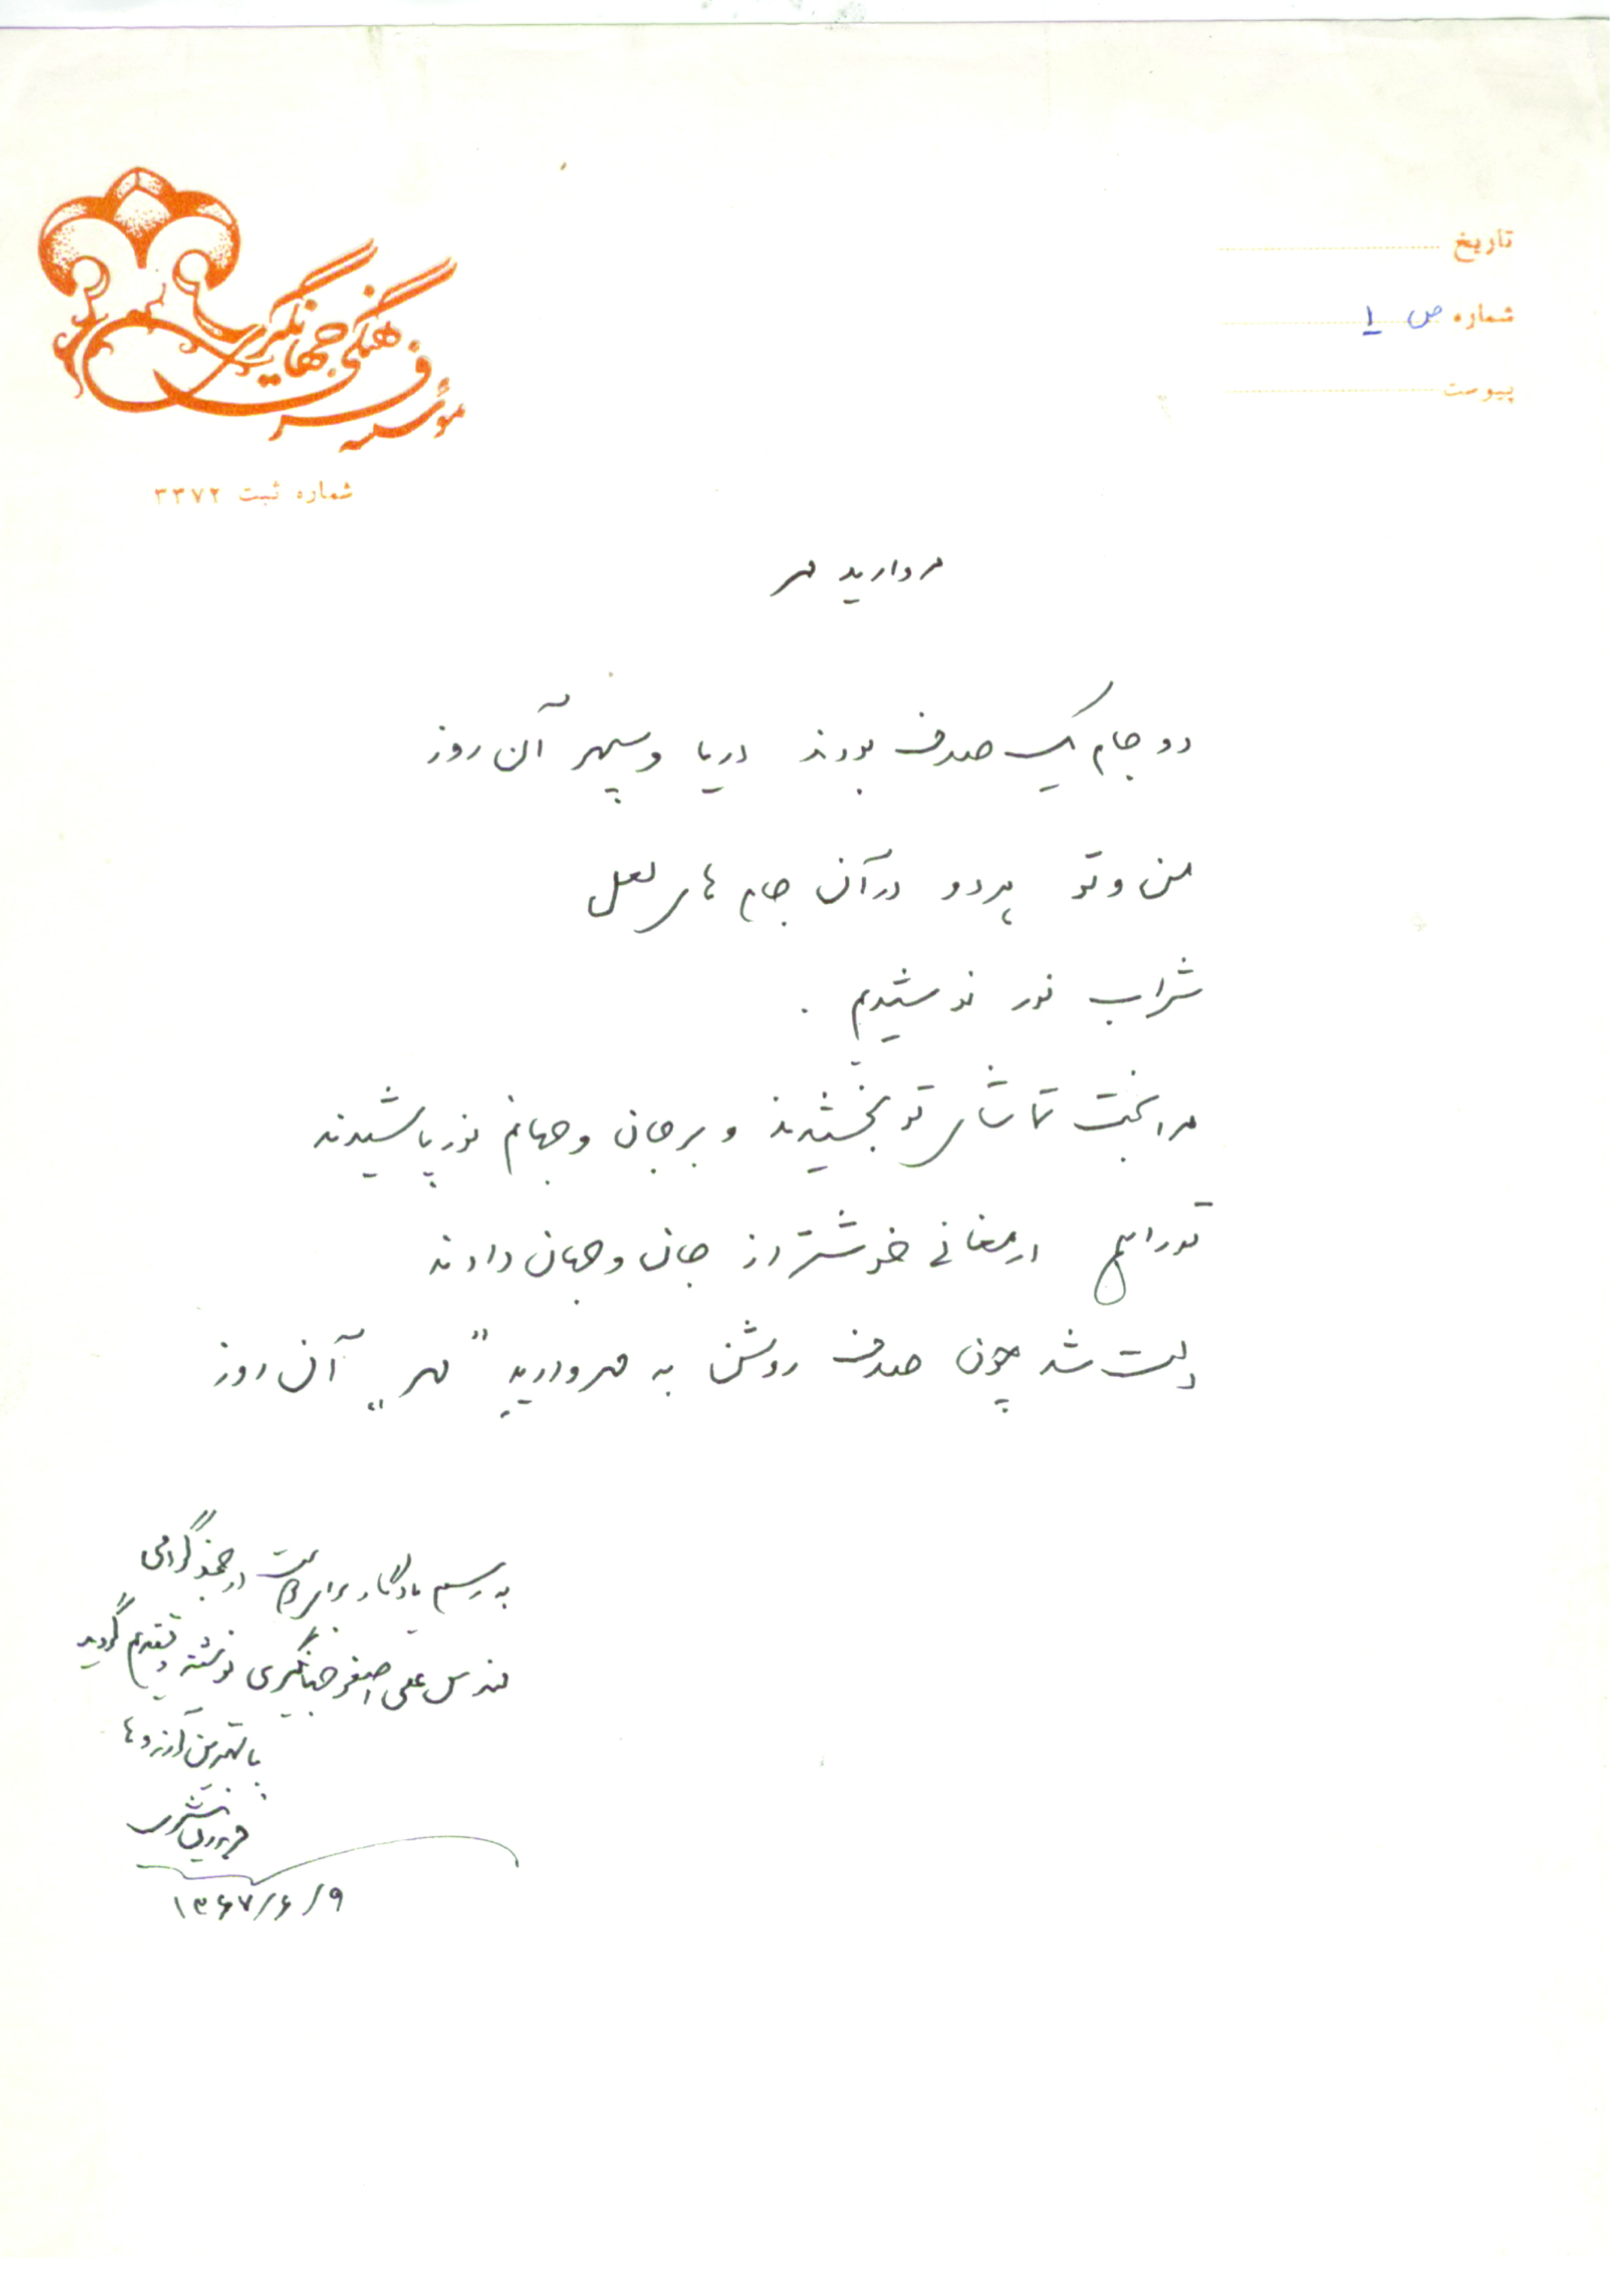 تاریخ
شماره ص ۱
پیوست
مؤسسه فرهنگی جهانگیری
شماره ثبت ۳۳۷۲
مروارید مهر
دو جام یک صدف بودند دریا و سپهر آن روز
من و تو هر دو در آن جام های لعل
شراب نور نوشیدیم .
مرا بخت تماشای تو بخشیدند و بر جان و جهانم نور پاشیدند
تو را هم ارمغانی خوشتر از جان و جهان دادند
دلت شد چون صدف روشن به مروارید "مهر" آن روز
به رسم یادگار برای دوست ارجمند گرامی
مهندس علی اصغر جهانگیری نوشته و تقدیم گردید
با بهترین آرزوها
فریدون مشیری
۱۳۶۷/۶/۹